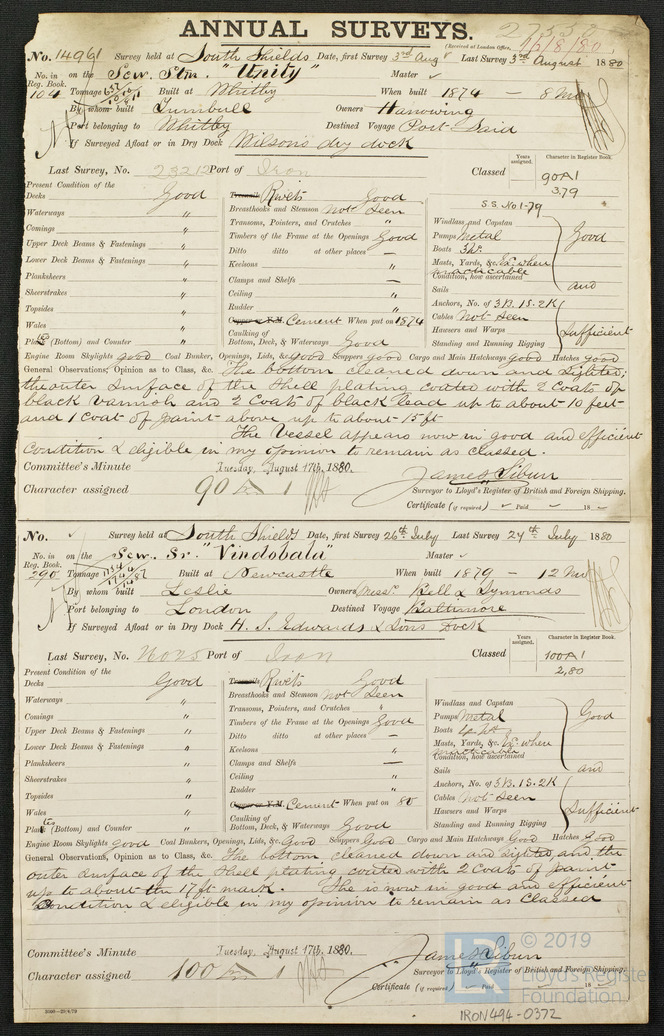 ANNUAL SURVEYS.
(Received at London Office, 17/8/80)
No. 14961 Survey held at South Shields Date, first Survey 3rd Augt Last Survey 3rd August 1880
No. in Reg. Book. on the Scw. Stm. "Unity" Master
104 Tonnage Built at Whitby When built 1874 — 8 Mo
By whom built Turnbull Owners Harrowing
Port belonging to Whitby Destined Voyage Port Said
If Surveyed Afloat or in Dry Dock Wilson's dry dock
Last Survey, No. 23212 Port of Iron Classed Years assigned. Character in Register Book. 90A1
3,79
S.S. No 1-79
Present Condition of the
Decks Good Rivets Good
Waterways " Breasthooks and Stemson not Seen
Comings " Transoms, Pointers, and Crutches "
Upper Deck Beams & Fastenings " Timbers of the Frame at the Openings Good
Lower Deck Beams & Fastenings " Ditto ditto at other places —
Planksheers " Keelsons "
Sheerstrakes " Clamps and Shelfs —
Topsides " Ceiling "
Wales " Rudder "
Plates (Bottom) and Counter " Copper or Y.M. Cement When put on 1874
Caulking of Bottom, Deck, & Waterways Good
Windlass and Capstan
Pumps Metal Good
Boats 3 No.
Masts, Yards, &c. Ex: when practicable
Condition, how ascertained
Sails and
Anchors, No. of 3B. 1S. 2K
Cables Not Seen
Hawsers and Warps Sufficient
Standing and Running Rigging
Engine Room Skylights good Coal Bunker, Openings, Lids, &c. good Scuppers good Cargo and Main Hatchways good Hatches good
General Observations, Opinion as to Class, &c. The bottom cleaned down and sighted;
the outer surface of the Shell plating coated with 2 Coats of
black varnish and 2 Coats of black lead up to about 10 feet
and 1 coat of paint above up to about 15 ft
The Vessel appears now in good and efficient
Condition & eligible in my opinion to remain as classed.
Committee's Minute Tuesday, August 17th, 1880.
Character assigned 90 A 1
James Sibun
Surveyor to Lloyd's Register of British and Foreign Shipping.
Certificate (if required) Paid 18
No. Survey held at South Shields Date, first Survey 26th July Last Survey 27th July 1880
No. in Reg. Book. on the Scw. Sr. "Vindobala" Master
290 Tonnage Built at Newcastle When built 1879 — 12 Mo
By whom built Leslie Owners Messrs Bell & Symonds
Port belonging to London Destined Voyage Baltimore
If Surveyed Afloat or in Dry Dock H. S. Edwards & Sons Dock
Last Survey, No. Port of Iron Classed Years assigned. Character in Register Book. 100A1
2,80
Present Condition of the
Decks Good Rivets Good
Waterways " Breasthooks and Stemson not Seen
Comings " Transoms, Pointers, and Crutches "
Upper Deck Beams & Fastenings " Timbers of the Frame at the Openings Good
Lower Deck Beams & Fastenings " Ditto ditto at other places —
Planksheers " Keelsons "
Sheerstrakes " Clamps and Shelfs —
Topsides " Ceiling "
Wales " Rudder "
Plates (Bottom) and Counter " Copper or Y.M. Cement When put on 80
Caulking of Bottom, Deck, & Waterways Good
Windlass and Capstan
Pumps Metal Good
Boats 4 No.
Masts, Yards, &c. Ex: when practicable
Condition, how ascertained
Sails and
Anchors, No. of 3B. 1S. 2K
Cables Not Seen
Hawsers and Warps Sufficient
Standing and Running Rigging
Engine Room Skylights good Coal Bunkers, Openings, Lids, &c. Good Scuppers Good Cargo and Main Hatchways Good Hatches Good
General Observations, Opinion as to Class, &c. The bottom cleaned down and sighted and the
outer surface of the Shell plating coated with 2 Coats of paint
up to about the 17 ft mark. She is now in good and efficient
Condition & eligible in my opinion to remain as Classed
Committee's Minute Tuesday, August 17th, 1880.
Character assigned 100 A 1
James Sibun
Surveyor to Lloyd's Register of British and Foreign Shipping.
Certificate (if required) Paid 18
© 2019
Lloyd's Register
Foundation
IRON494-0372